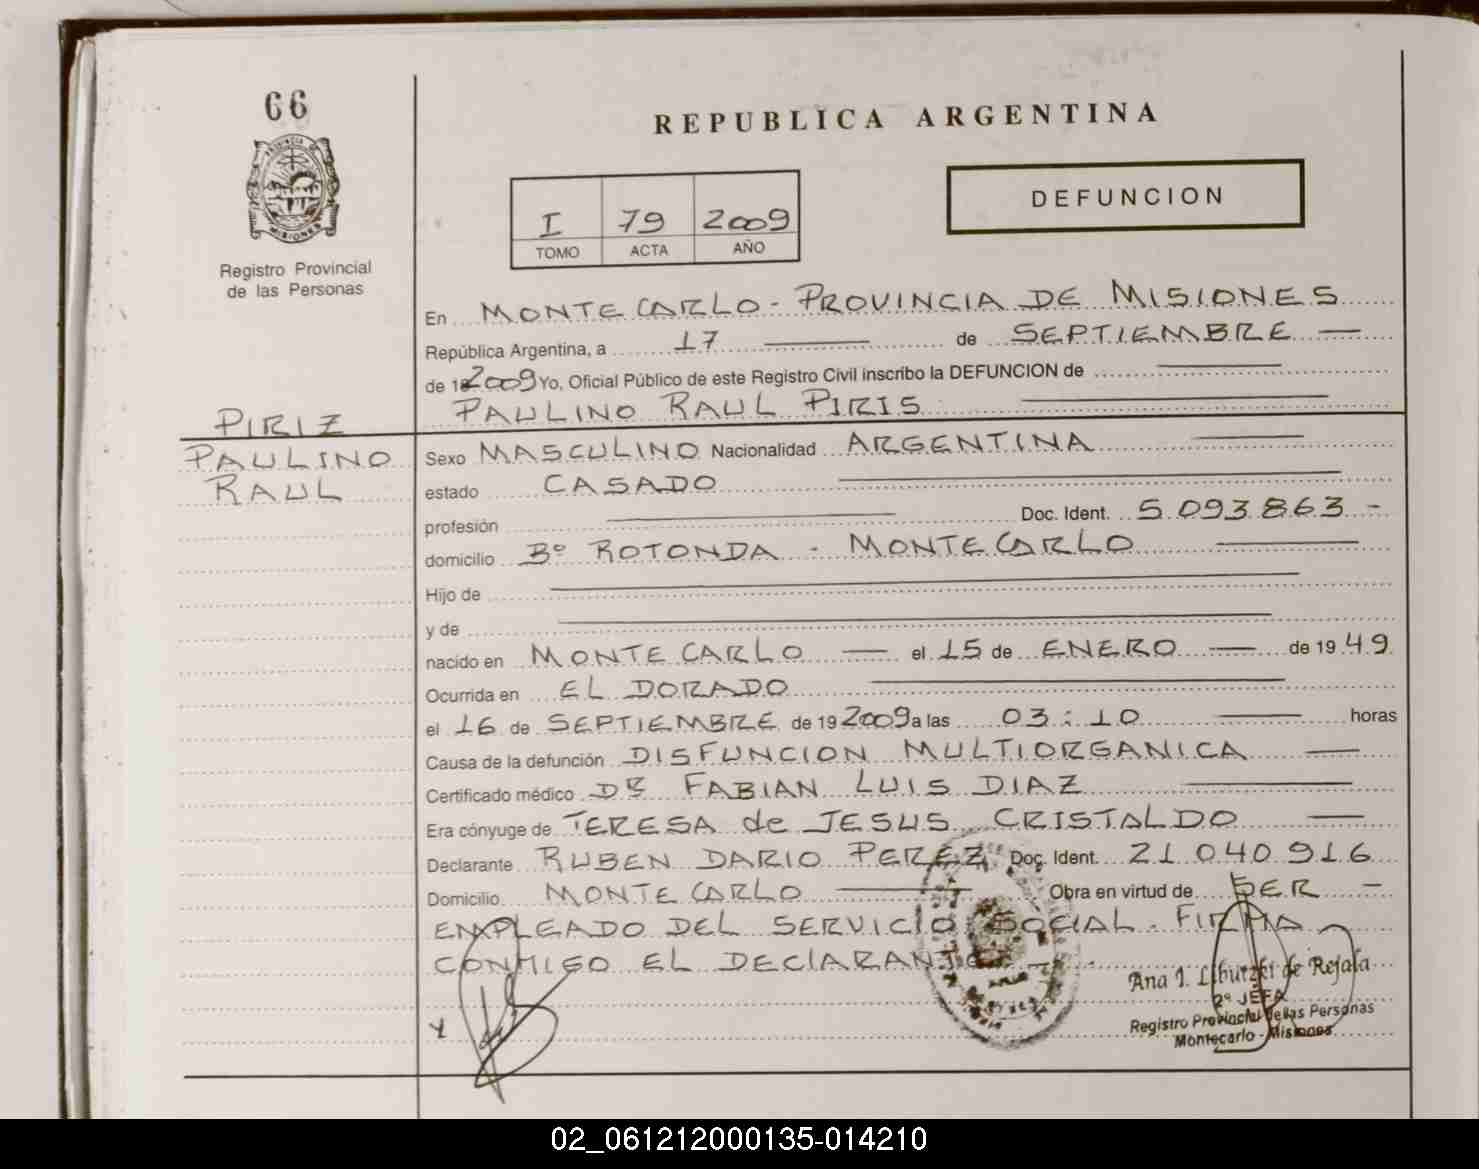 66
PROVINCIA DE
MISIONES
Registro Provincial
de las Personas
REPUBLICA ARGENTINA
I 79 2009
TOMO ACTA AÑO
DEFUNCION
En MONTECARLO - PROVINCIA DE MISIONES
República Argentina, a 17 de SEPTIEMBRE
de 2009 Yo, Oficial Público de este Registro Civil inscribo la DEFUNCION de
PAULINO RAUL PIRIS
PIRIZ
PAULINO
RAUL
Sexo MASCULINO Nacionalidad ARGENTINA
estado CASADO
profesión Doc. Ident. 5.093.863 -
domicilio Bº ROTONDA - MONTECARLO
Hijo de
y de
nacido en MONTECARLO el 15 de ENERO de 1949
Ocurrida en EL DORADO
el 16 de SEPTIEMBRE de 19 2009 a las 03:10 horas
Causa de la defunción DISFUNCION MULTIORGANICA
Certificado médico DR FABIAN LUIS DIAZ
Era cónyuge de TERESA de JESUS CRISTALDO
Declarante RUBEN DARIO PEREZ Doc. Ident. 21.040.916
Domicilio MONTECARLO Obra en virtud de SER -
EMPLEADO DEL SERVICIO SOCIAL. FIRMA
CONMIGO EL DECLARANTE
Ana I. de Rejala
2º JEFA
Registro Provincial de las Personas
Montecarlo - Misiones
02_061212000135-014210